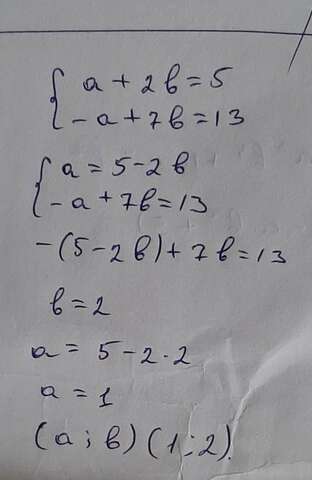 { a + 2в = 5
{ -a + 7в = 13
{ a = 5 - 2в
{ -a + 7в = 13
-(5 - 2в) + 7в = 13
в = 2
a = 5 - 2·2
a = 1
(a ; в) (1 ; 2).